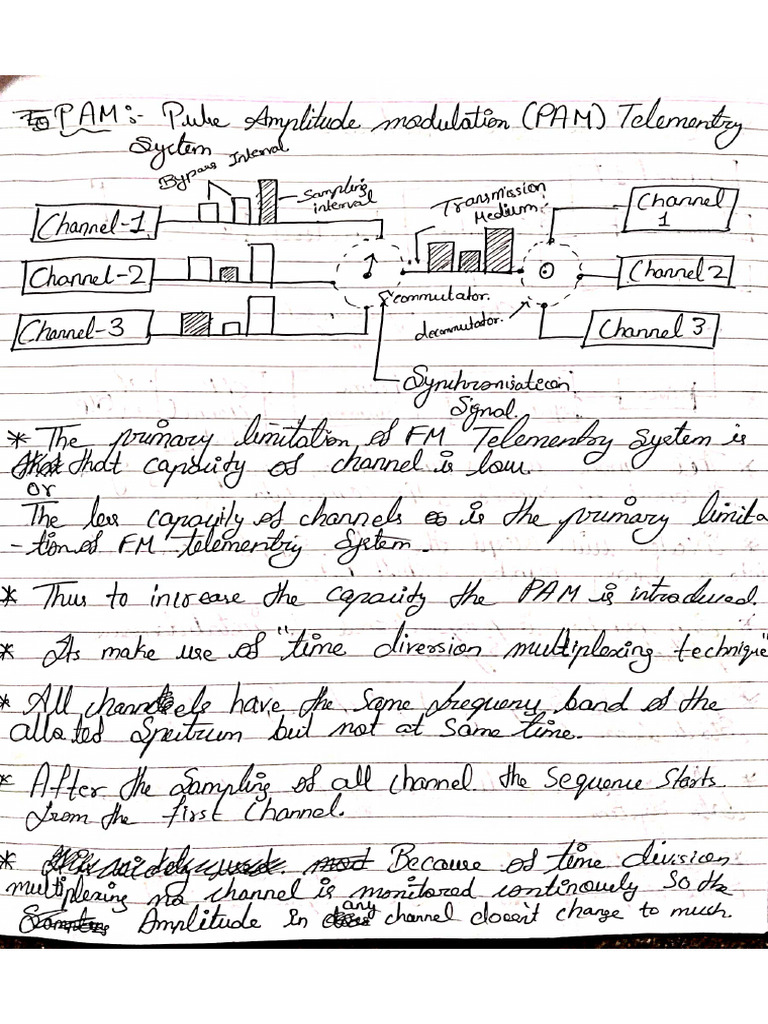 PAM :- Pulse Amplitude modulation (PAM) Telementry
System
Bypass Interval
Sampling
interval
Transmission
Medium
Channel-1
Channel
1
Channel-2
Channel 2
commutator.
decommutator.
Channel-3
Channel 3
Synchronisation
Signal.
* The primary limitation of FM Telementry System is
that capacity of channel is low.
or
The less capacity of channels is the primary limita
-tion of FM telementry System.
* Thus to increase the capacity the PAM is introduced.
* Its make use of "time diversion multiplexing technique"
* All channels have the same frequency band of the
allated Spectrum but not at same time.
* After the Sampling of all channel the sequence starts
from the first channel.
* Because of time division
multiplexing no channel is monitored continously so the
Amplitude in any channel doesn't change to much.